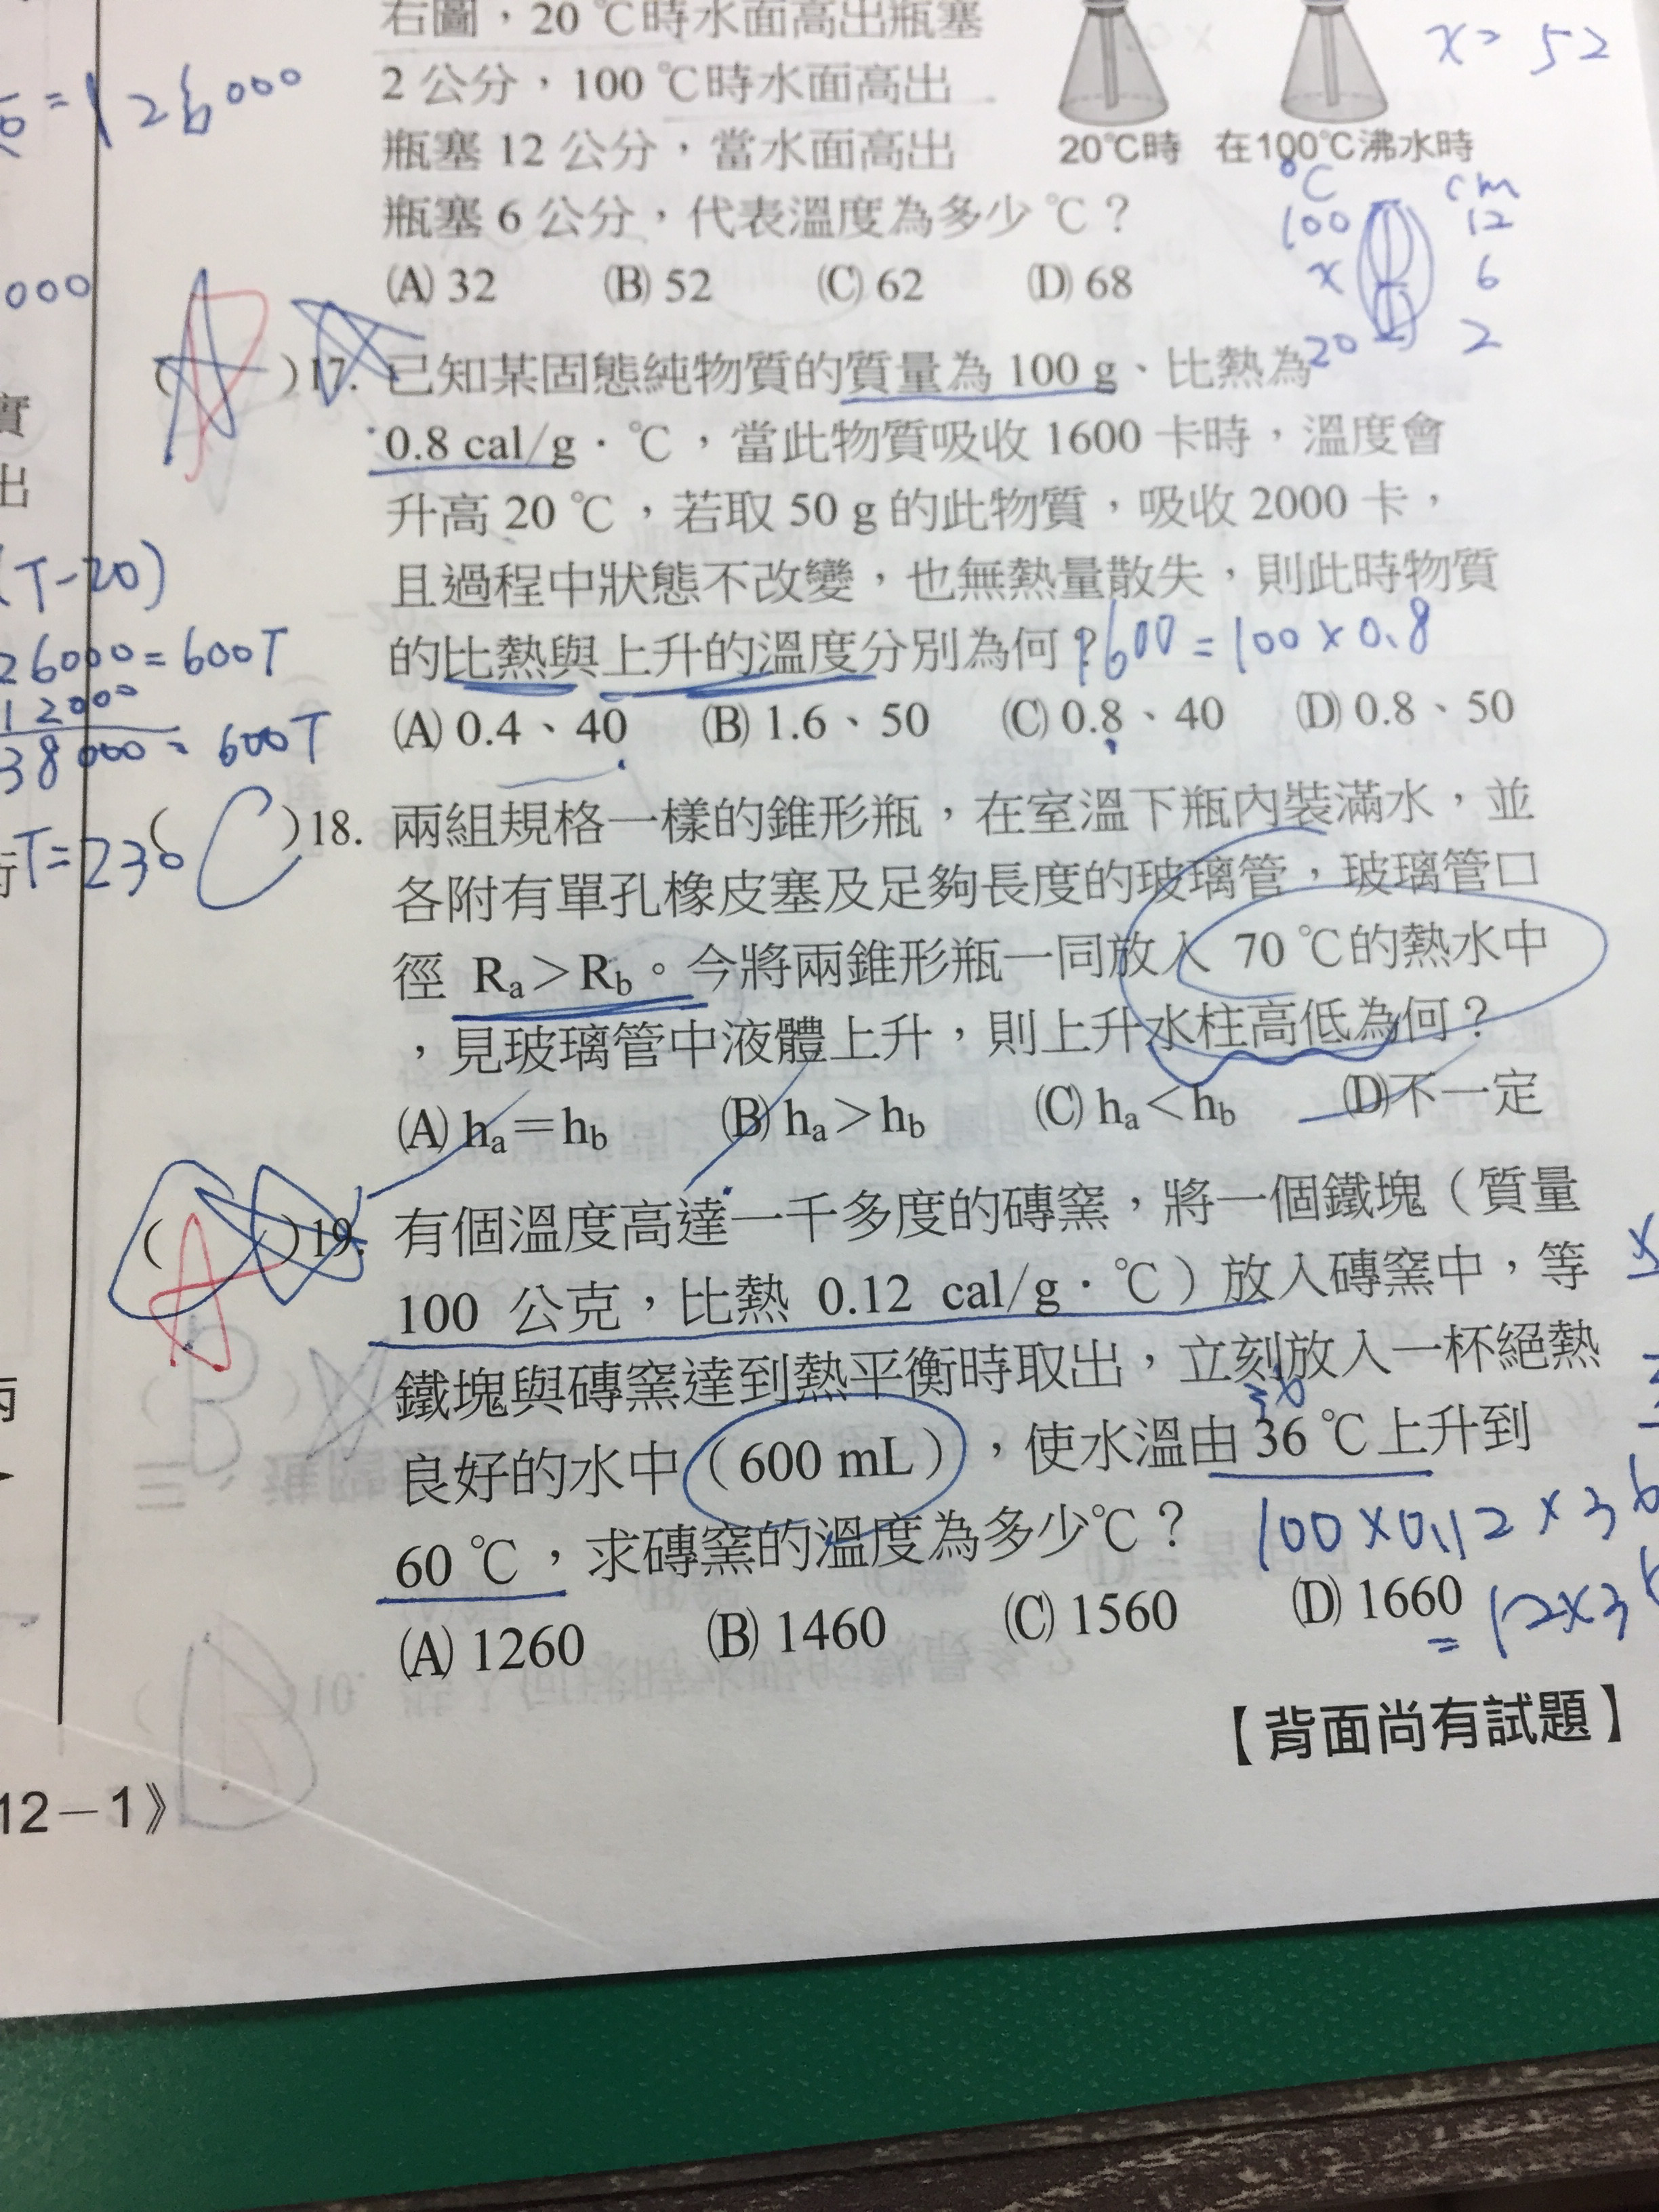 右圖，20 ℃時水面高出瓶塞
2 公分，100 ℃時水面高出
瓶塞 12 公分，當水面高出
瓶塞 6 公分，代表溫度為多少 ℃？
(A) 32 (B) 52 (C) 62 (D) 68
20℃時 在100℃沸水時
x = 52
℃ cm
100 12
x 6
20 2
( )17. 已知某固態純物質的質量為 100 g、比熱為
0.8 cal/g．℃，當此物質吸收 1600 卡時，溫度會
升高 20 ℃，若取 50 g 的此物質，吸收 2000 卡，
且過程中狀態不改變，也無熱量散失，則此時物質
的比熱與上升的溫度分別為何？
600 = 100 × 0.8
(A) 0.4、40 (B) 1.6、50 (C) 0.8、40 (D) 0.8、50
( C )18. 兩組規格一樣的錐形瓶，在室溫下瓶內裝滿水，並
各附有單孔橡皮塞及足夠長度的玻璃管，玻璃管口
徑 Ra＞Rb。今將兩錐形瓶一同放入 70 ℃的熱水中
，見玻璃管中液體上升，則上升水柱高低為何？
(A) ha＝hb (B) ha＞hb (C) ha＜hb (D)不一定
( )19. 有個溫度高達一千多度的磚窯，將一個鐵塊（質量
100 公克，比熱 0.12 cal/g．℃）放入磚窯中，等
鐵塊與磚窯達到熱平衡時取出，立刻放入一杯絕熱
良好的水中（600 mL），使水溫由 36 ℃上升到
60 ℃，求磚窯的溫度為多少℃？
(A) 1260 (B) 1460 (C) 1560 (D) 1660
36
100 × 0.12 × 36
= 12×3
【背面尚有試題】
= 126000
000
實
出
(T-20)
26000 = 600T
12000
38000 = 600T
T=236
12－1》